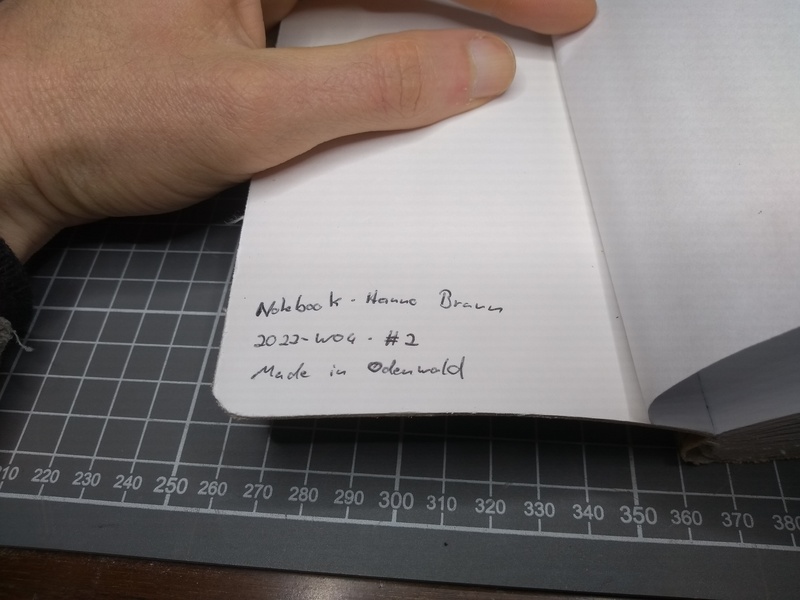 Notebook - Hanno Braun
2022-W04 - #2
Made in Odenwald
210 220 230 240 250 260 270 280 290 300 310 320 330 340 350 360 370 380